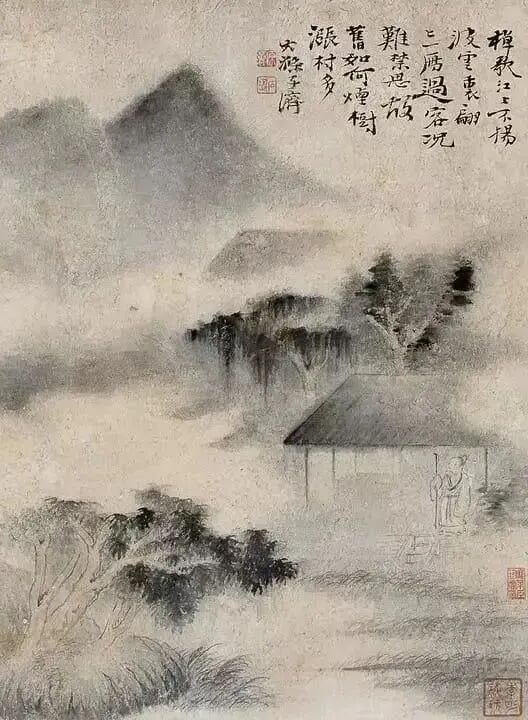 棹歌江上不揚
波雲裏翩
々雁過客况
難禁思故
舊如何煙樹
漲村多
大滌子濟